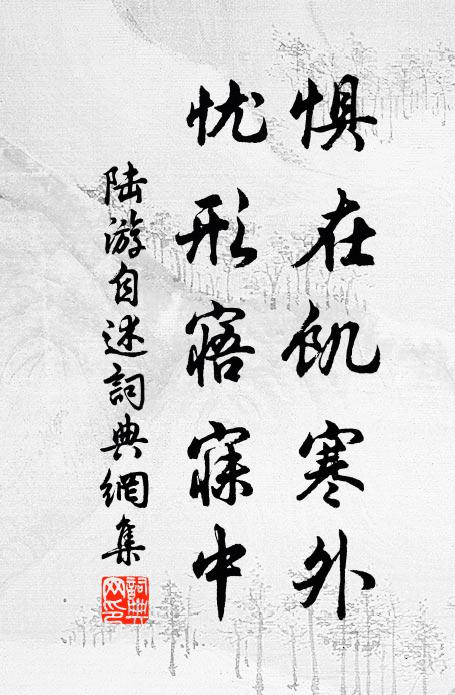 惧在饥寒外
忧形寤寐中
陆游自述詞典網集
詞典网印